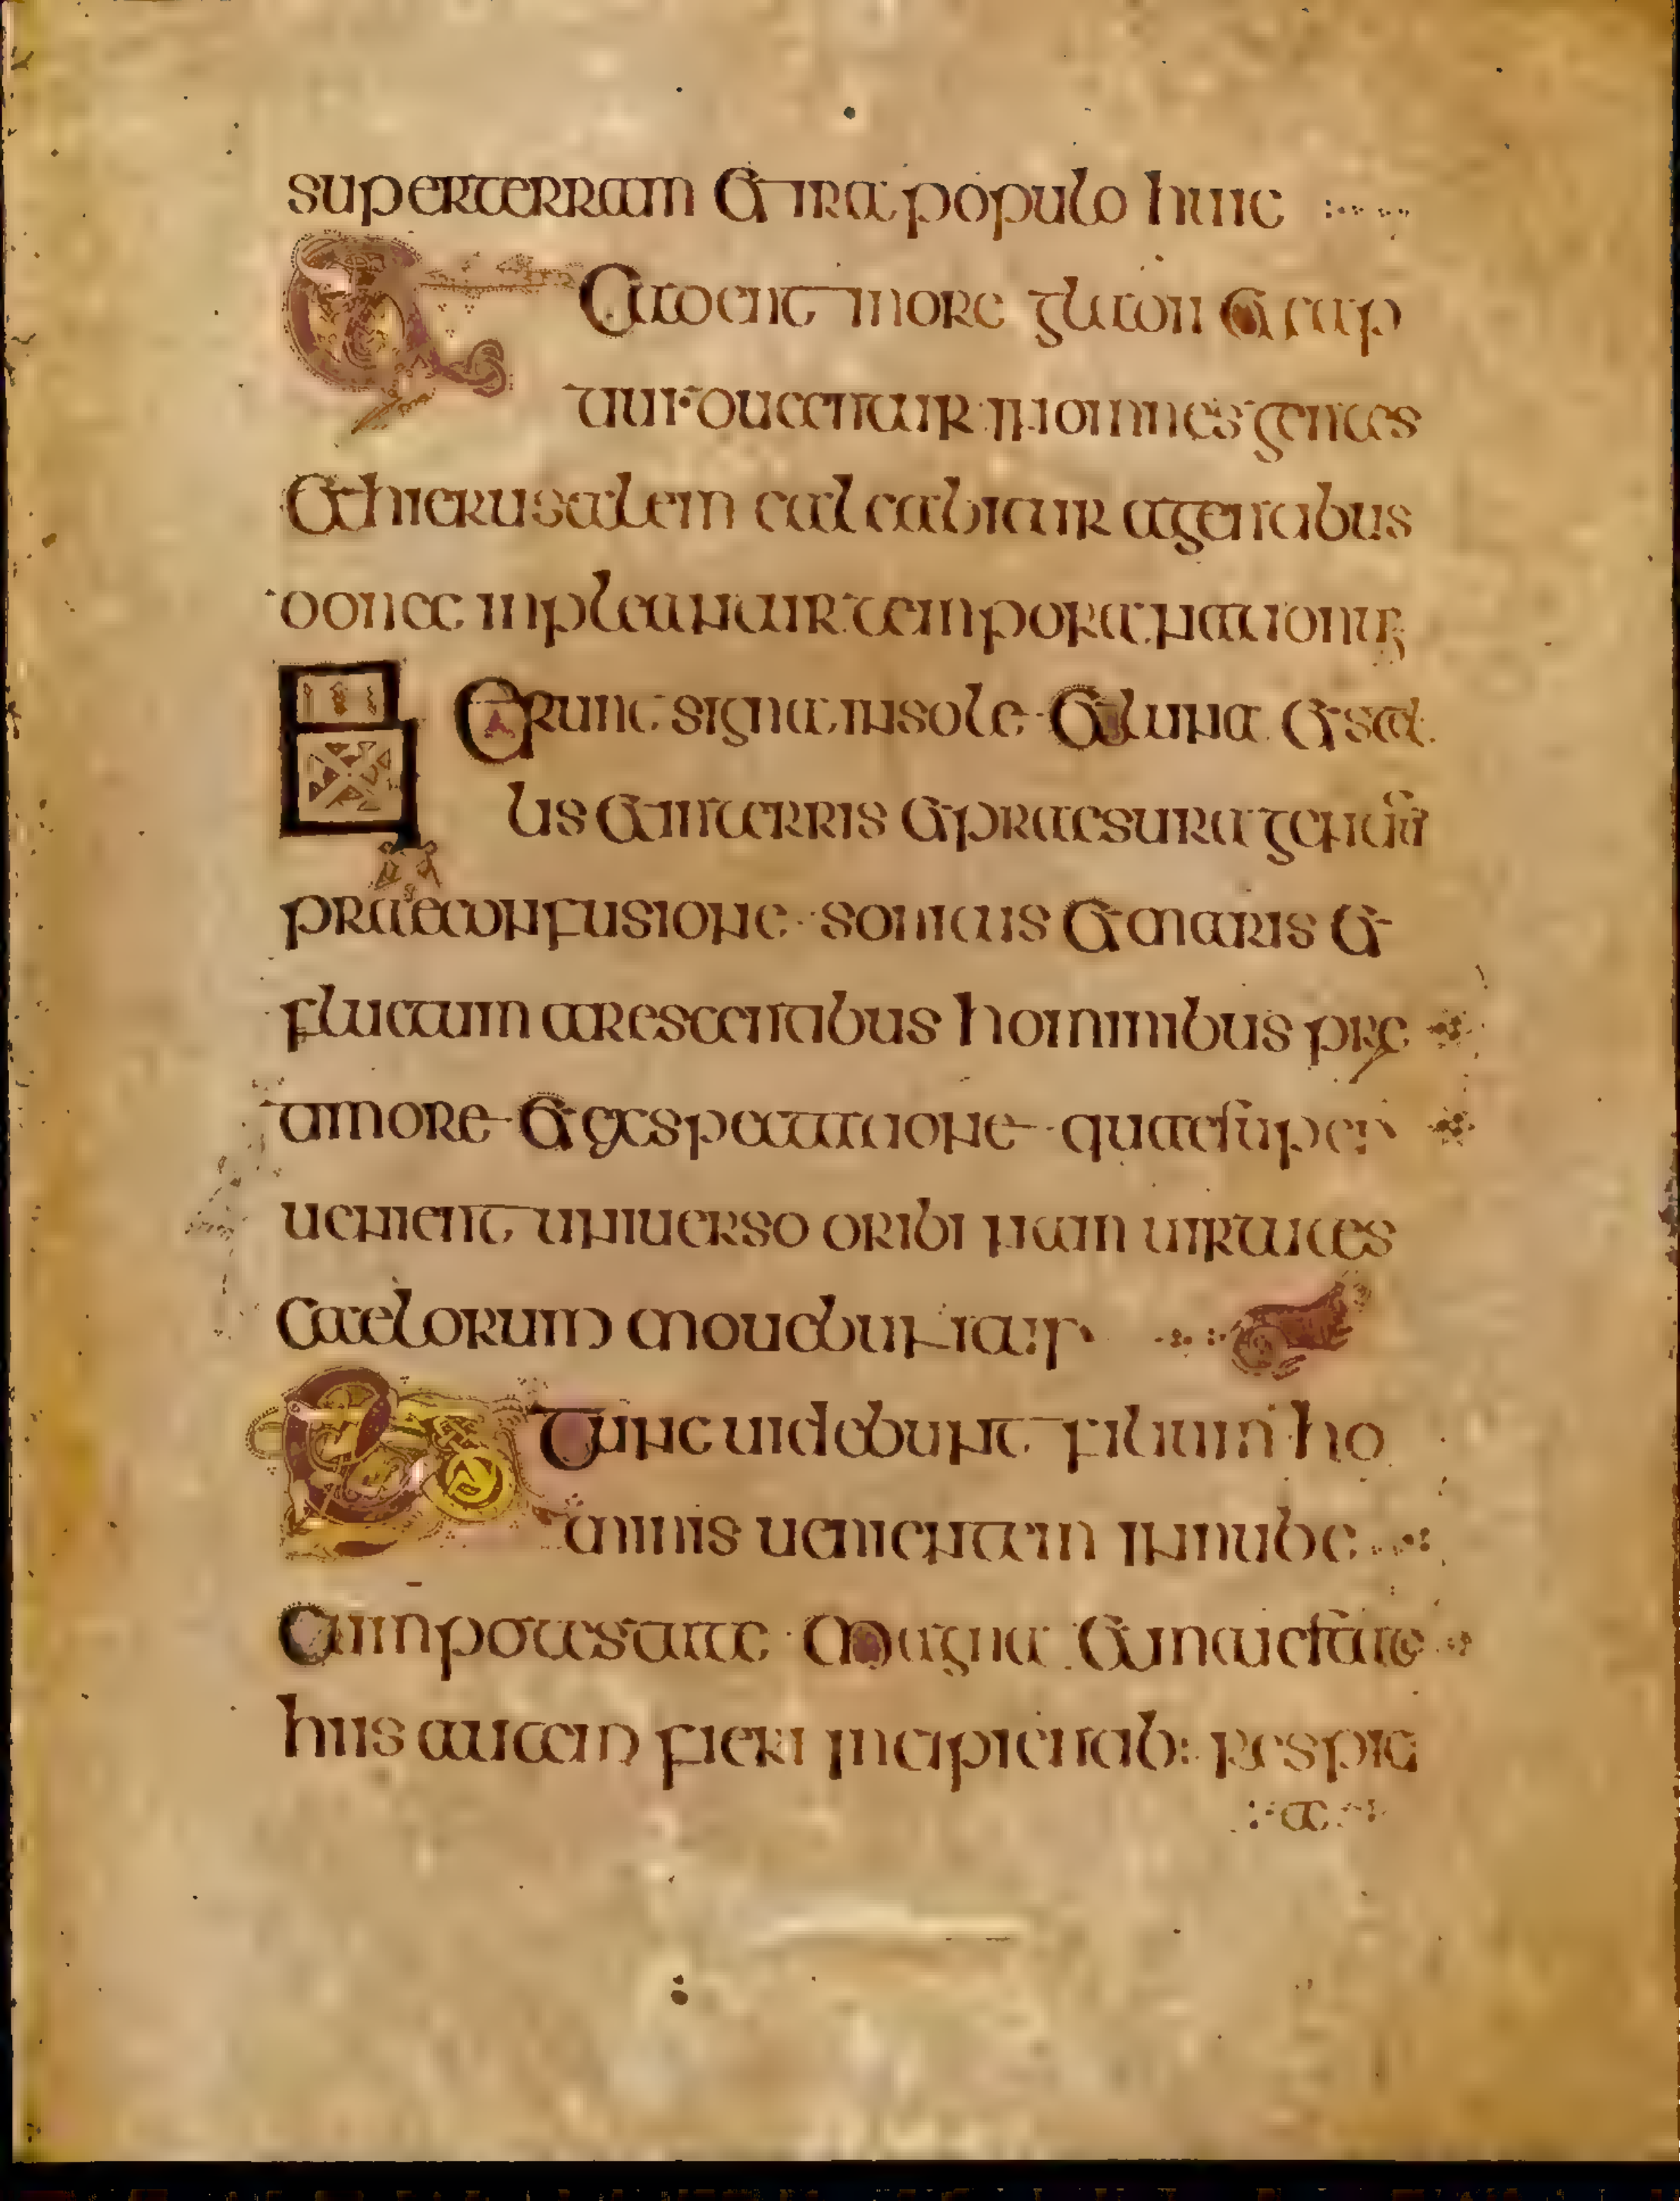 super terram et ira populo huic
Et cadent in ore gladii et cap
tiui ducentur in omnes gentes
Et hierusalem calcabitur a gentibus
donec inpleantur tempora nationum
Et erunt signa in sole et luna et stel
lis et in terris et praesura gentium
prae confusione sonitus et maris et
fluctum arescentibus hominibus prę
timore et exspectatione quae super
uenient uniuerso oribi nam uirtutes
caelorum mouebuntur
Et tunc uidebunt filium ho
minis uenientem in nube
cum potestate magna et maiestate
hiis autem fieri incipientib: respici
te